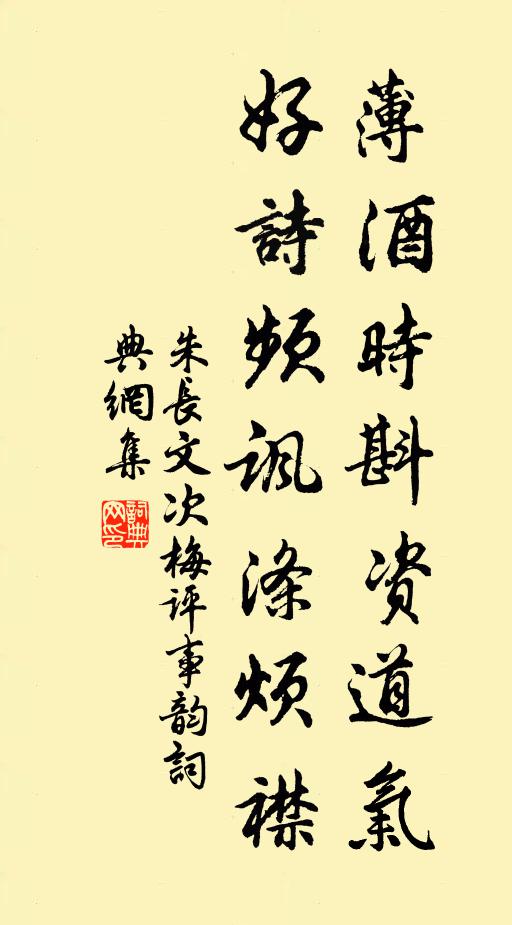 薄酒時斟资道氣
好詩頻諷滌煩襟
朱長文次梅评事韵詞
典網集
詞典
网印